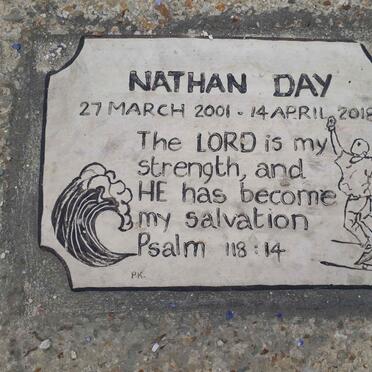 NATHAN DAY
27 MARCH 2001 - 14 APRIL 2018
The LORD is my
strength, and
HE has become
my salvation
Psalm 118:14
P.K.